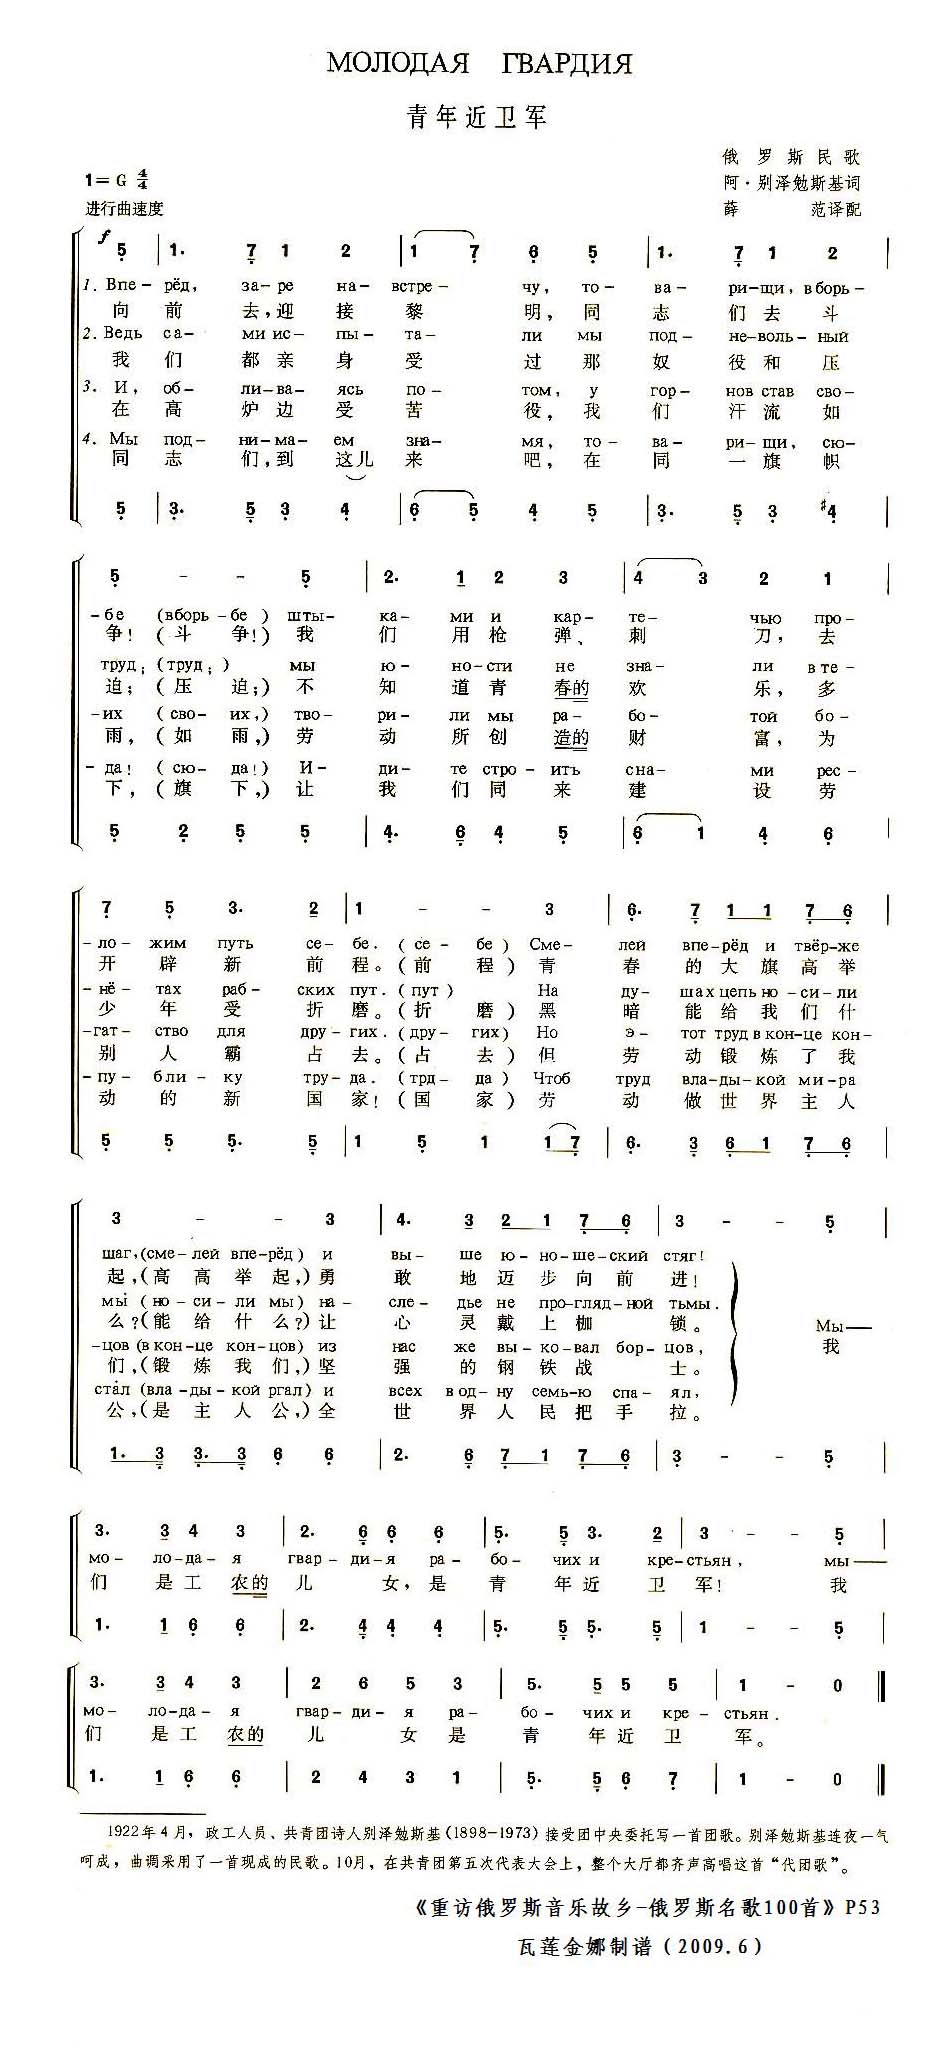 МОЛОДАЯ ГВАРДИЯ
青年近卫军
俄罗斯民歌
1=G 4/4
阿·别泽勉斯基词
进行曲速度
薛范译配
f
5 | 1. 7 1 2 | 1 7 6 5 | 1. 7 1 2 |
1. Впе- рёд, за- ре на- встре- чу, то- ва- ри-щи, вборь-
向前去,迎接黎明,同志们去斗
2. Ведь са- ми ис- пы- та- ли мы под- не-воль- ный
我们都亲身受过那奴役和压
3. И, об- ли-ва- ясь по- том, у гор- нов став сво-
在高炉边受苦役,我们汗流如
4. Мы под- ни-ма- ем зна- мя, то- ва- ри- щи, сю-
同志们,到这儿来吧,在同一旗帜
5 | 3. 5 3 4 | 6 5 4 5 | 3. 5 3 #4 |
5 - - 5 | 2. 1 2 3 | 4 3 2 1 |
-бе (вборь-бе) шты- ка- ми и кар- те- чью про-
争!(斗争!)我们用枪弹、刺刀,去
труд; (труд;) мы ю- но-сти не зна- ли в те-
迫;(压迫;)不知道青春的欢乐,多
-их (сво- их,) тво- ри- ли мы ра- бо- той бо-
雨,(如雨,)劳动所创造的财富,为
-да! (сю- да!) И- ди- те стро- ить сна- ми рес-
下,(旗下,)让我们同来建设劳
5 2 5 5 | 4. 6 4 5 | 6 1 4 6 |
7 5 3. 2 | 1 - - 3 | 6. 7 1 1 7 6 |
-ло- жим путь се- бе. (се- бе) Сме- лей впе-рёд и твёр-же
开辟新前程。(前程)青春的大旗高举
-нё- тах раб- ских пут. (пут) На ду- шах цепь но-си-ли
少年受折磨。(折磨)黑暗能给我们什
-гат- ство для дру- гих. (дру- гих) Но э- тот труд в кон-це кон-
别人霸占去。(占去)但劳动锻炼了我
-пу- бли- ку тру- да. (трд- да) Чтоб труд вла-ды-кой ми-ра
动的新国家!(国家)劳动做世界主人
5 5 5. 5 | 1 5 1 1 7 | 6. 3 6 1 7 6 |
3 - - 3 | 4. 3 2 1 7 6 | 3 - - 5 |
шаг, (сме-лей впе-рёд) и вы- ше ю-но-ше-ский стяг!
起,(高高举起,)勇敢地迈步向前进!
мы (но-си-ли мы) на- сле- дье не про-гляд-ной тьмы.
么?(能给什么?)让心灵戴上枷锁。
Мы—
-цов (в кон-це кон-цов) из нас же вы-ко-вал бор-цов,
我
们,(锻炼我们,)坚强的钢铁战士。
стал (вла-ды-кой ргал) и всех в од-ну семь-ю спа-ял,
公,(是主人公,)全世界人民把手拉。
1. 3 3. 3 6 6 | 2. 6 7 1 7 6 | 3 - - 5 |
3. 3 4 3 | 2. 6 6 6 | 5. 5 3. 2 | 3 - - 5 |
мо- ло-да- я гвар- ди-я ра- бо- чих и кре-стьян, мы—
们是工农的儿女,是青年近卫军!我
1. 1 6 6 | 2. 4 4 4 | 5. 5 5. 5 | 1 - - 5 |
3. 3 4 3 | 2 6 5 3 | 5. 5 5 5 | 1 - 0 ‖
мо- ло-да- я гвар-ди- я ра- бо- чих и кре- стьян.
们是工农的儿女是青年近卫军。
1. 1 6 6 | 2 4 3 1 | 5. 5 6 7 | 1 - 0 ‖
1922年4月,政工人员、共青团诗人别泽勉斯基(1898-1973)接受团中央委托写一首团歌。别泽勉斯基连夜一气
呵成,曲调采用了一首现成的民歌。10月,在共青团第五次代表大会上,整个大厅都齐声高唱这首“代团歌”。
《重访俄罗斯音乐故乡-俄罗斯名歌100首》P53
瓦莲金娜制谱(2009.6)